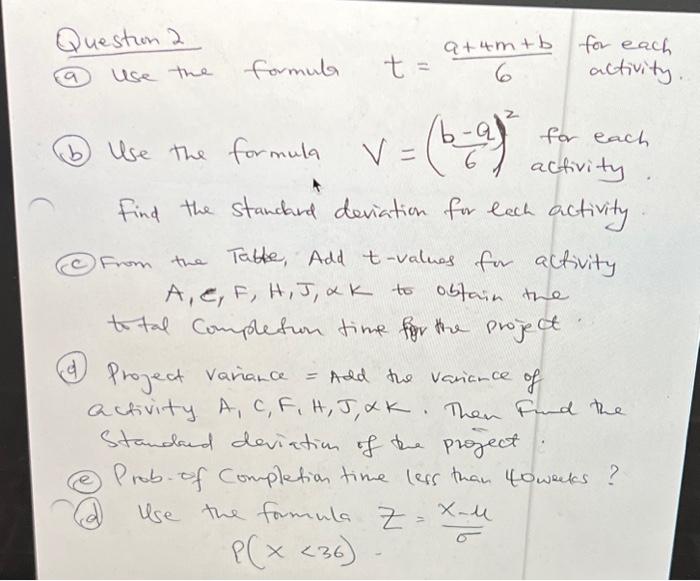 Question 2
(a) Use the formula t = (a+4m+b)/6 for each activity.
(b) Use the formula V = ((b-a)/6)² for each activity.
Find the standard deviation for each activity.
(c) From the Table, Add t-values for activity
A, C, F, H, J, & K to obtain the
total Completion time for the project.
(d) Project variance = Add the variance of
activity A, C, F, H, J, & K. Then Find the
Standard deviation of the project.
(e) Prob. of Completion time less than 40 weeks ?
(d) Use the formula Z = (X-μ)/σ
P(X <36) -